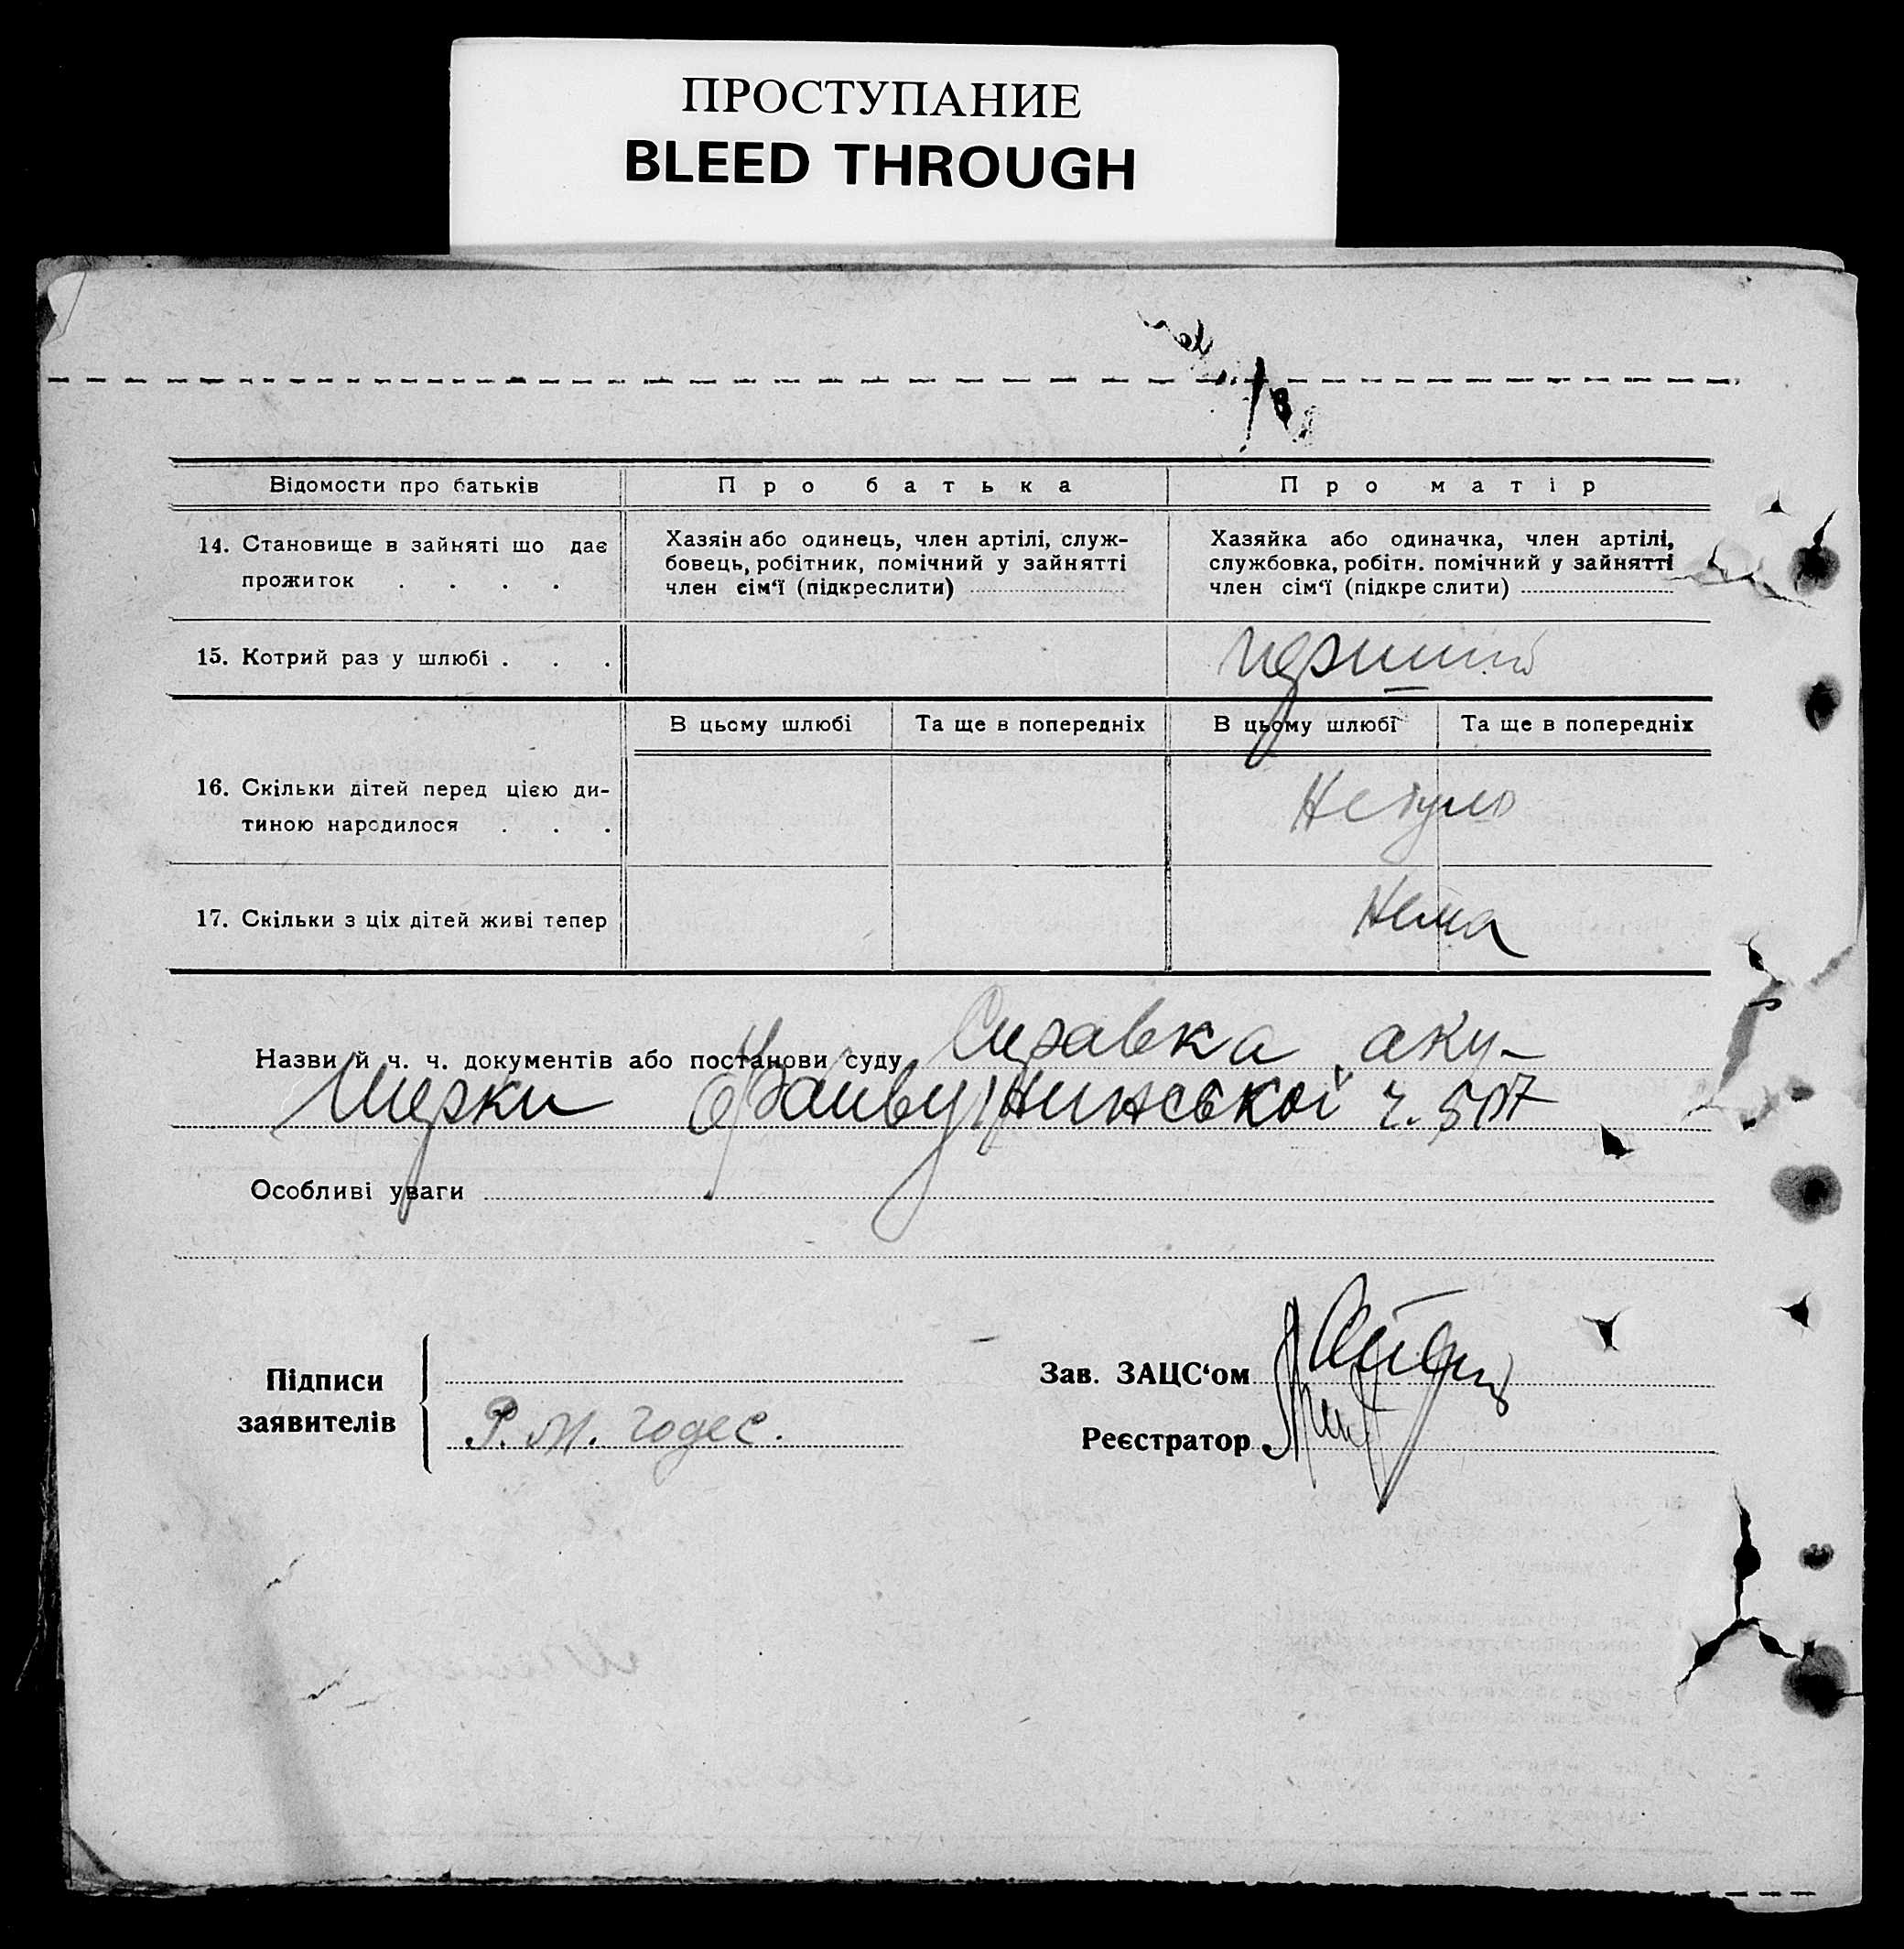 ПРОСТУПАНИЕ
BLEED THROUGH
Відомости про батьків
Про батька
Про матір
14. Становище в зайняті що дає
прожиток . . . .
Хазяін або одинець, член артілі, служ-
бовець, робітник, помічний у зайнятті
член сім‘ї (підкреслити)
Хазяйка або одиначка, член артілі,
службовка, робітн. помічний у зайнятті
член сім‘ї (підкре слити)
15. Котрий раз у шлюбі . . .
перший
В цьому шлюбі
Та ще в попередніх
В цьому шлюбі
Та ще в попередніх
16. Скільки дітей перед цією ди-
тиною народилося . . .
Не було
17. Скільки з ціх дітей живі тепер
Нема
Назви й ч. ч. документів або постанови суду Справка аку-
шерки ч. 507
Особливі уваги
Підписи
заявителів
Р. М. Годес.
Зав. ЗАЦС‘ом
Реєстратор